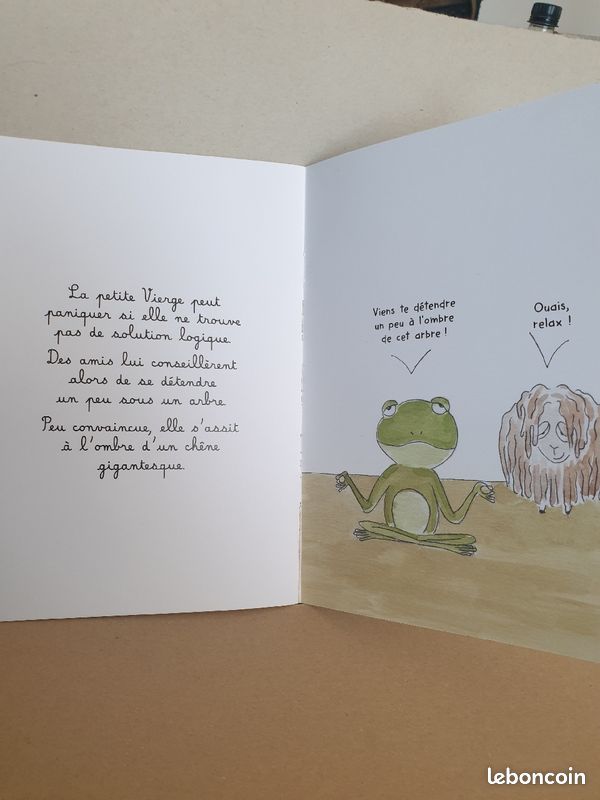 La petite Vierge peut
paniquer si elle ne trouve
pas de solution logique.
Des amis lui conseillèrent
alors de se détendre
un peu sous un arbre.
Peu convaincue, elle s'assit
à l'ombre d'un chêne
gigantesque.
Viens te détendre
un peu à l'ombre
de cet arbre !
Ouais,
relax !
leboncoin